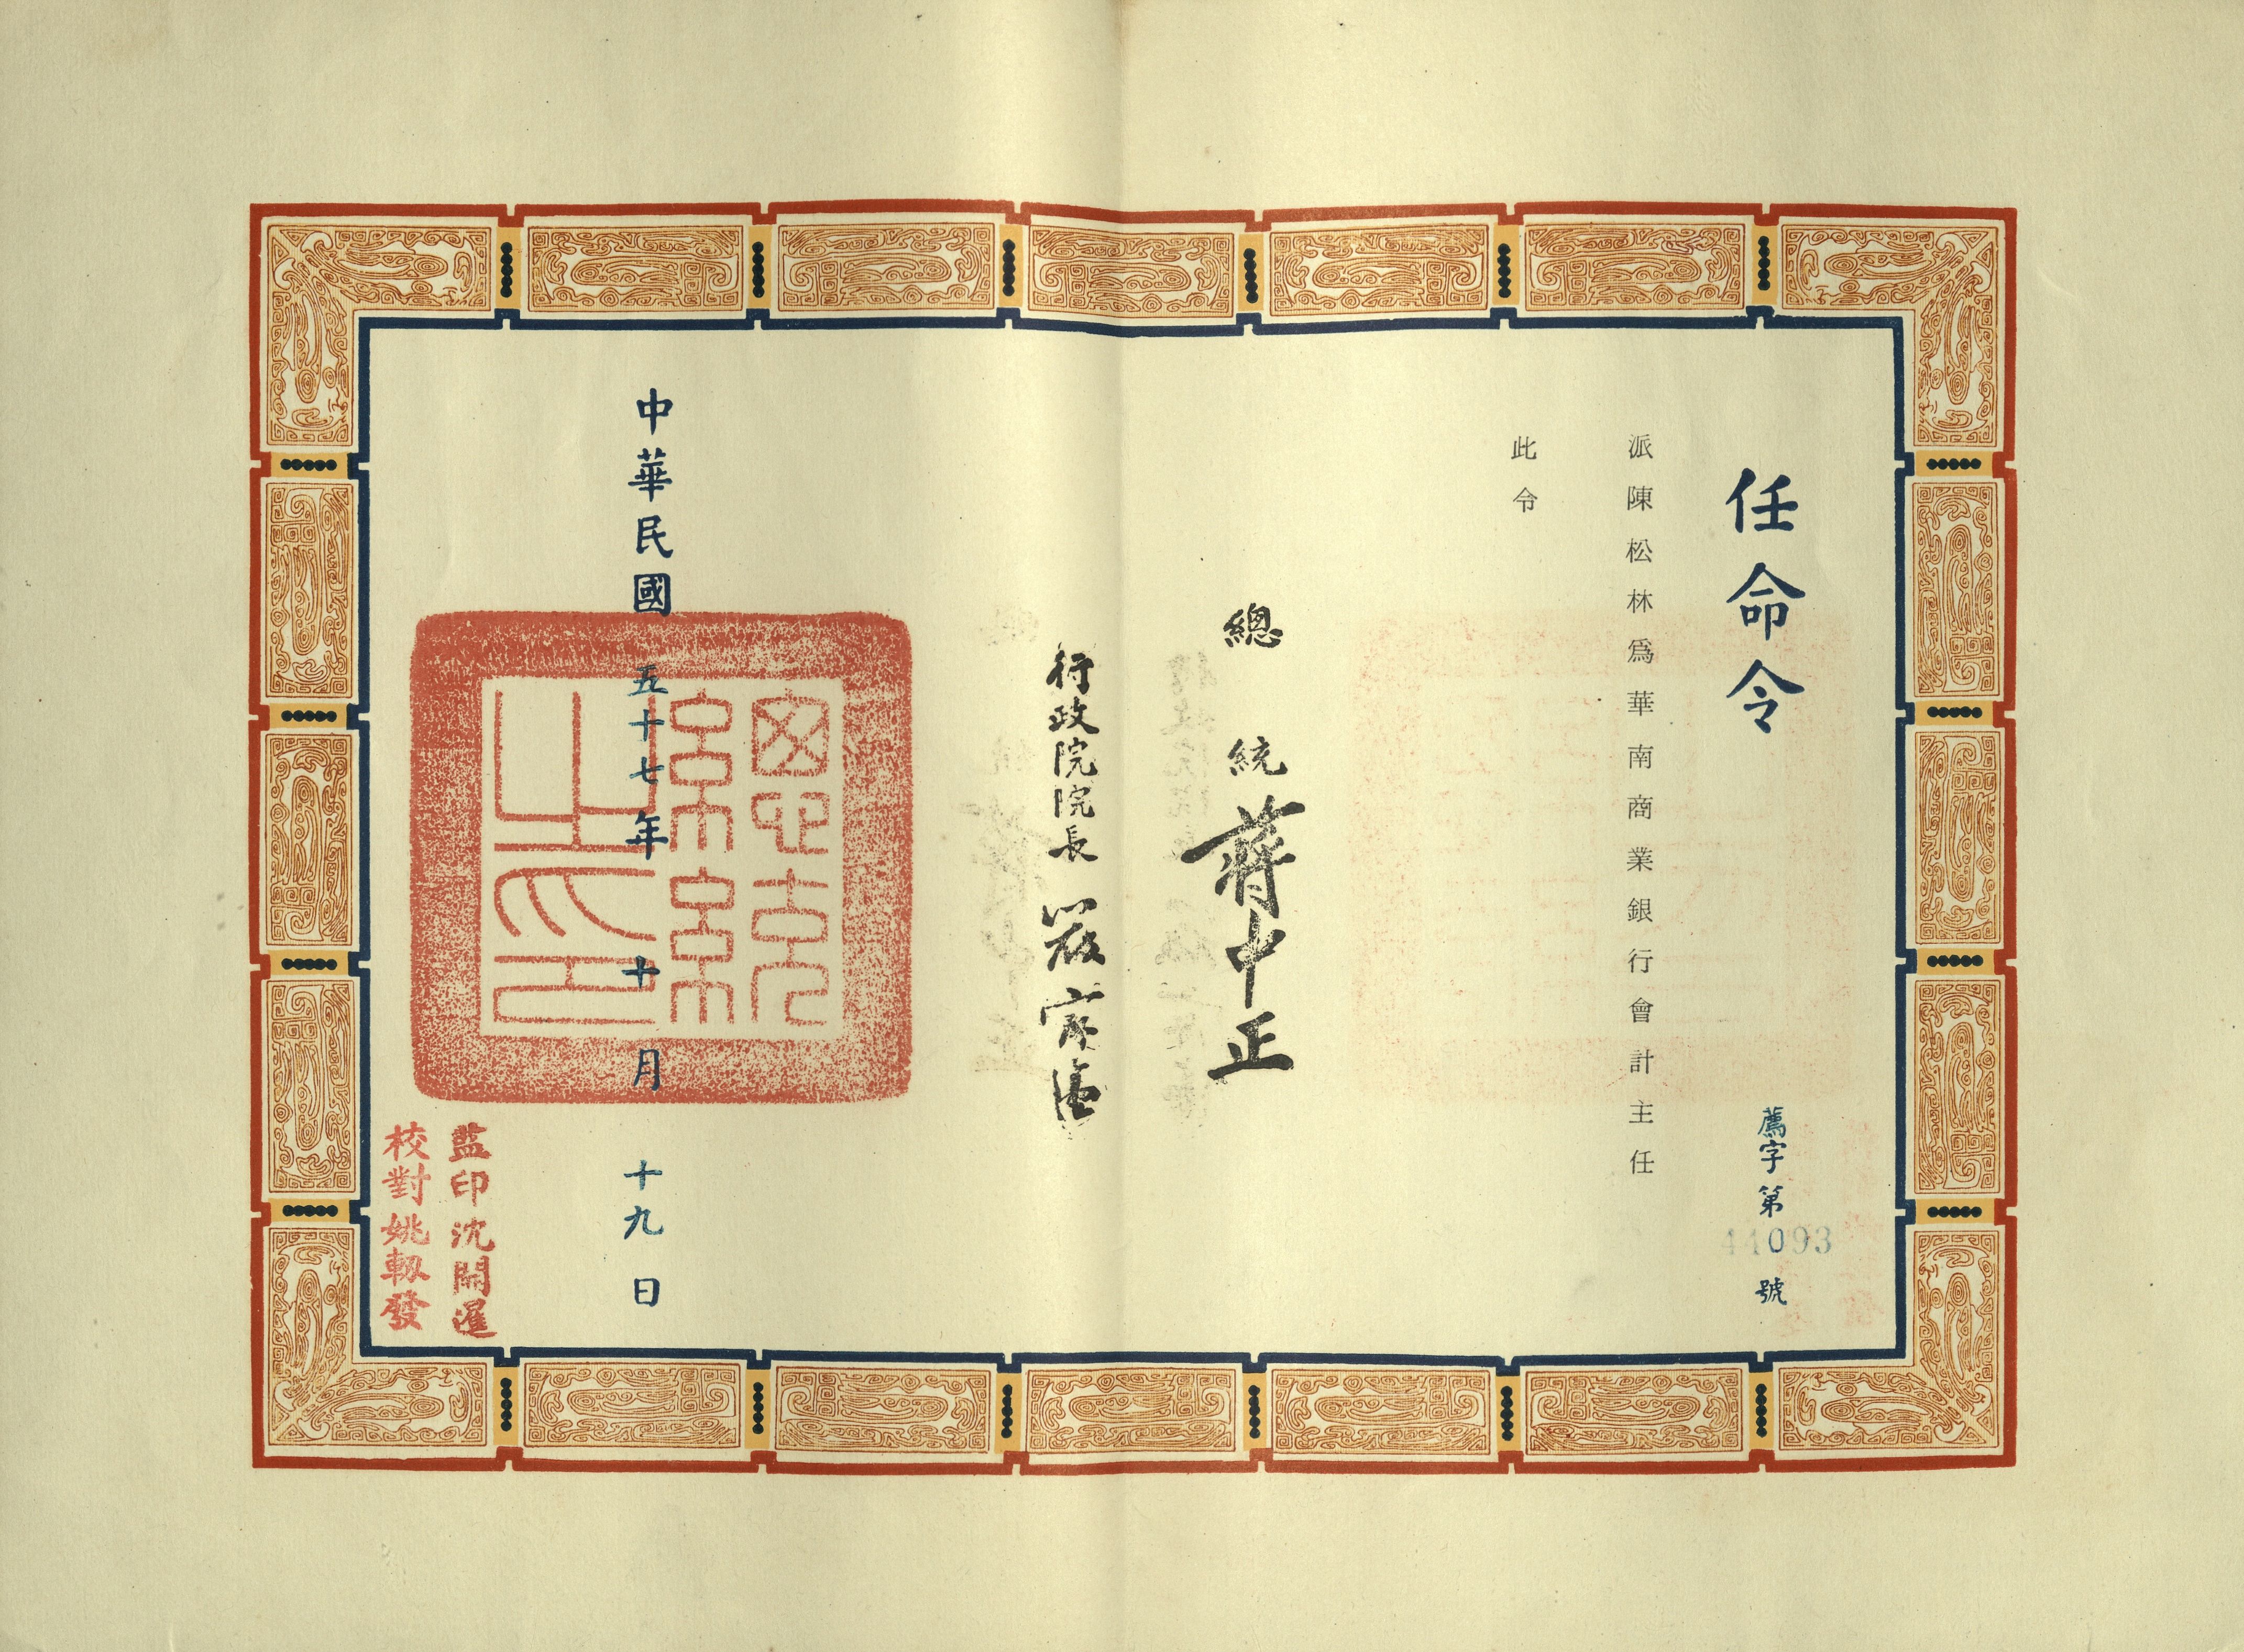 任命令
薦字第44093號
派陳松林爲華南商業銀行會計主任
此令
總統 蔣中正
行政院院長 嚴家淦
中華民國五十七年十月十九日
總統
之印
監印沈開暹
校對姚軔發